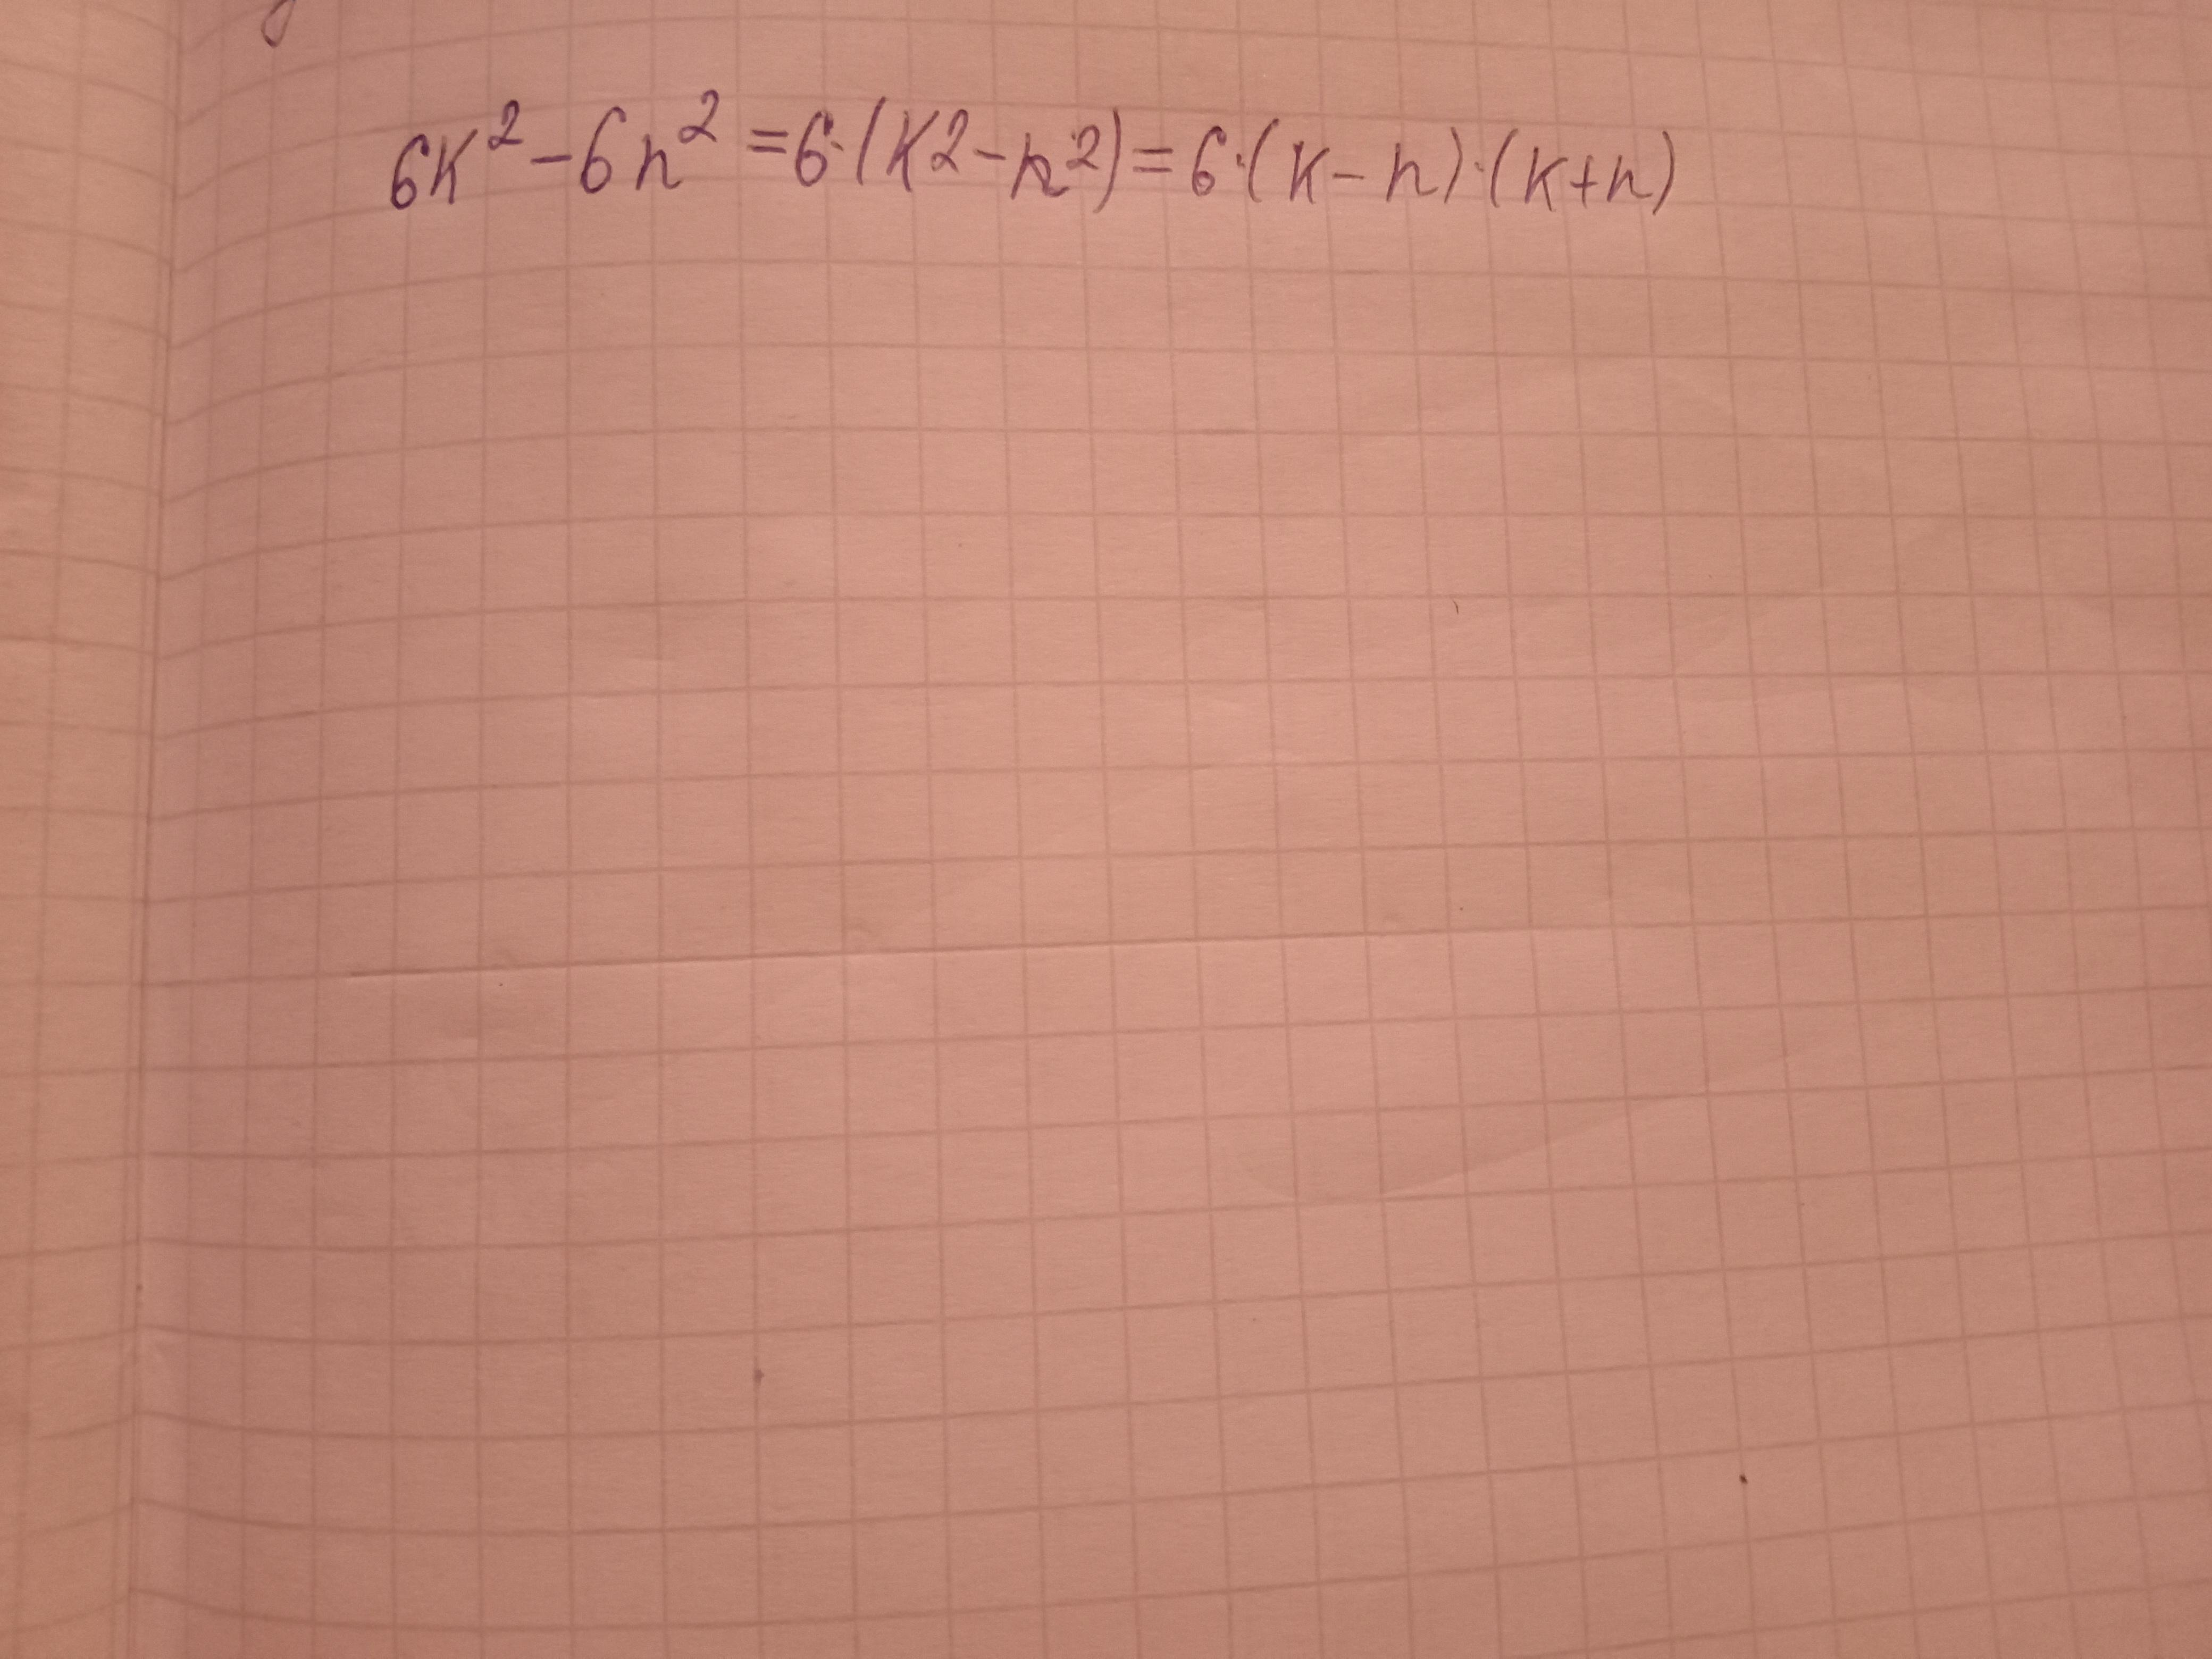 6k² - 6n² = 6·(k2 - n²) = 6·(k - n)·(k + n)